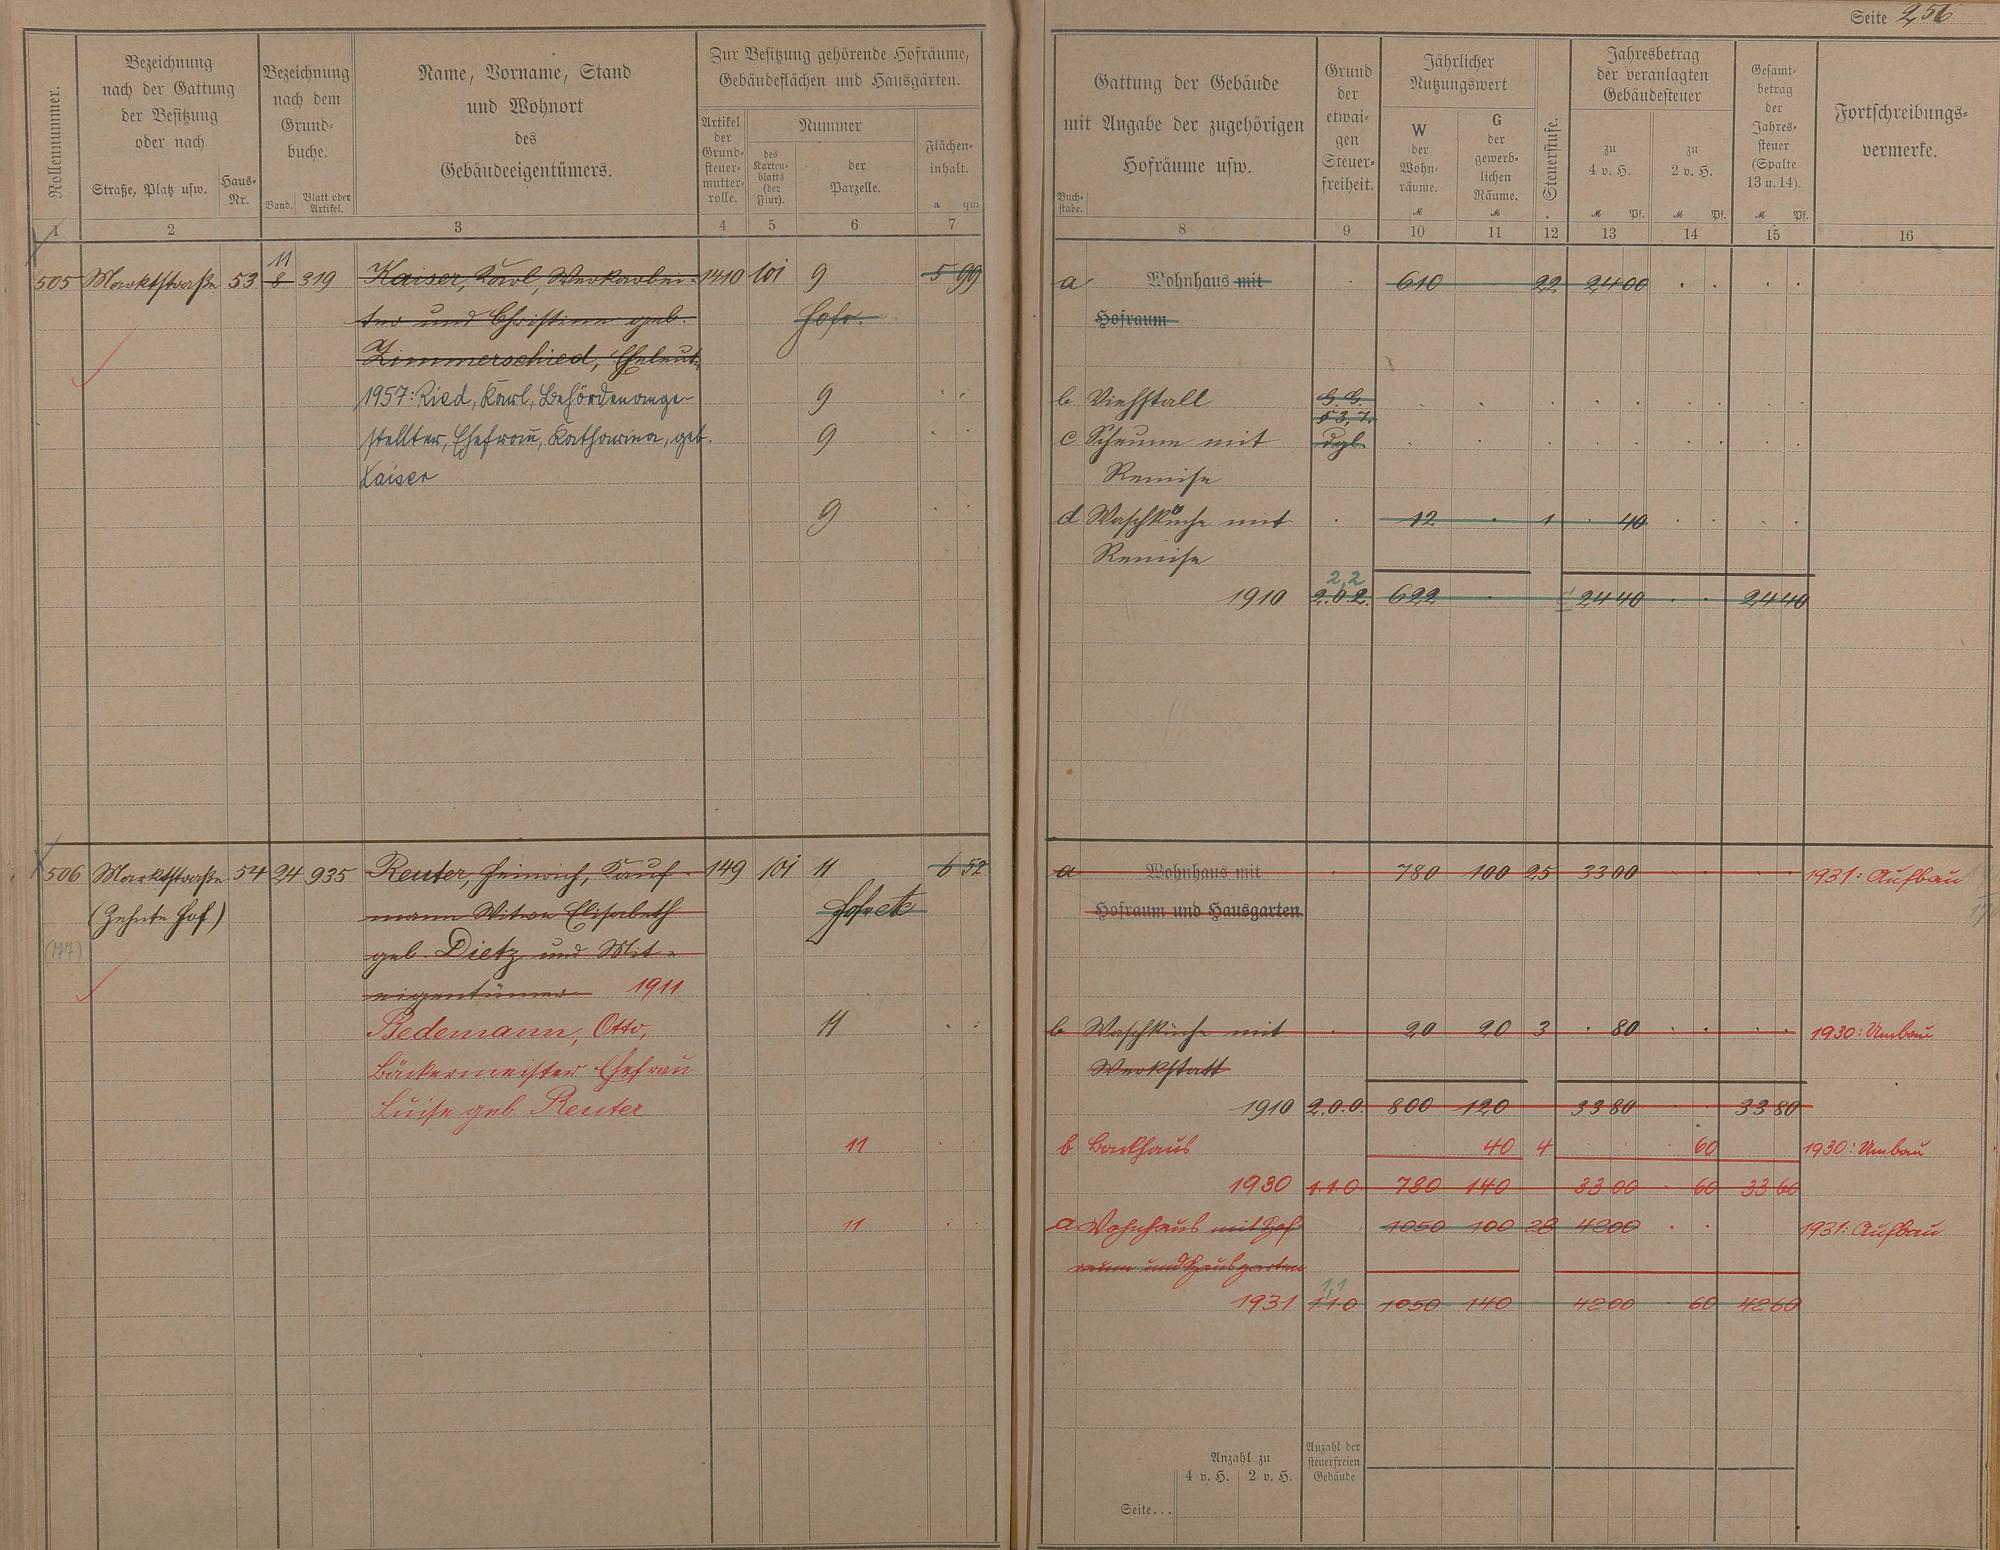 Seite 256
Rollennummer.
Bezeichnung
nach der Gattung
der Besitzung
oder nach
Straße, Platz usw.
Haus-
Nr.
Bezeichnung
nach dem
Grund-
buche.
Band.
Blatt oder
Artikel.
Name, Vorname, Stand
und Wohnort
des
Gebäudeeigentümers.
Zur Besitzung gehörende Hofräume,
Gebäudeflächen und Hausgärten.
Artikel
der
Grund-
steuer-
mutter-
rolle.
Nummer
des
Karten-
blatts
(der
Flur).
der
Parzelle.
Flächen-
inhalt.
a qm
1 2 3 4 5 6 7
505 Marktstraße 53 8 319 Kaiser, Karl, Werkarbei- 1410 101 9 5 99
11
ter und Christine geb. Hofr.
Zimmerschied, Eheleute
1957: Ried, Karl, Behördenange- 9
stellter, Ehefrau, Katharina, geb. 9
Kaiser
9
506 Marktstraße 54 24 935 Reuter, Heinrich, Kauf- 149 101 11 6 52
(Zehnte Hof) mann Witwe Elisabeth
(177) geb. Dietz und Mit-
eigentümer 1911
Redemann, Otto, 11
Bäckermeister Ehefrau
Luise geb. Reuter
11
11
Gattung der Gebäude
mit Angabe der zugehörigen
Hofräume usw.
Buch-
stabe.
Grund
der
etwai-
gen
Steuer-
freiheit.
Jährlicher
Nutzungswert
W
der
Wohn-
räume.
M
G
der
gewerb-
lichen
Räume.
M
Steuerstufe.
Jahresbetrag
der veranlagten
Gebäudesteuer
zu
4 v. H.
M Pf.
zu
2 v. H.
M Pf.
Gesamt-
betrag
der
Jahres-
steuer
(Spalte
13 u. 14).
M Pf.
Fortschreibungs-
vermerke.
8 9 10 11 12 13 14 15 16
a Wohnhaus mit 610 22 24 00
Hofraum
b Viehstall G. G.
§ 3, 7.
c Scheune mit dgl.
Remise
d Waschküche mit 12 1 40
Remise
2,2
1910 2.0.2. 622 24 40 24 40
a Wohnhaus mit 780 100 25 33 00 1931: Aufbau
Hofraum und Hausgarten
b Waschküche mit 20 20 3 80 1930: Umbau
Werkstatt
1910 2.0.0. 800 120 33 80 33 80
b Backhaus 40 4 60 1930: Umbau
1930 1.1.0. 780 140 33 00 60 33 60
a Wohnhaus mit Hof- 1050 100 28 42 00 1931: Aufbau
raum und Hausgarten
1,1
1931 1.1.0 1050 140 42 00 60 42 60
Anzahl zu
4 v. H. 2 v. H.
Anzahl der
steuerfreien
Gebäude
Seite...